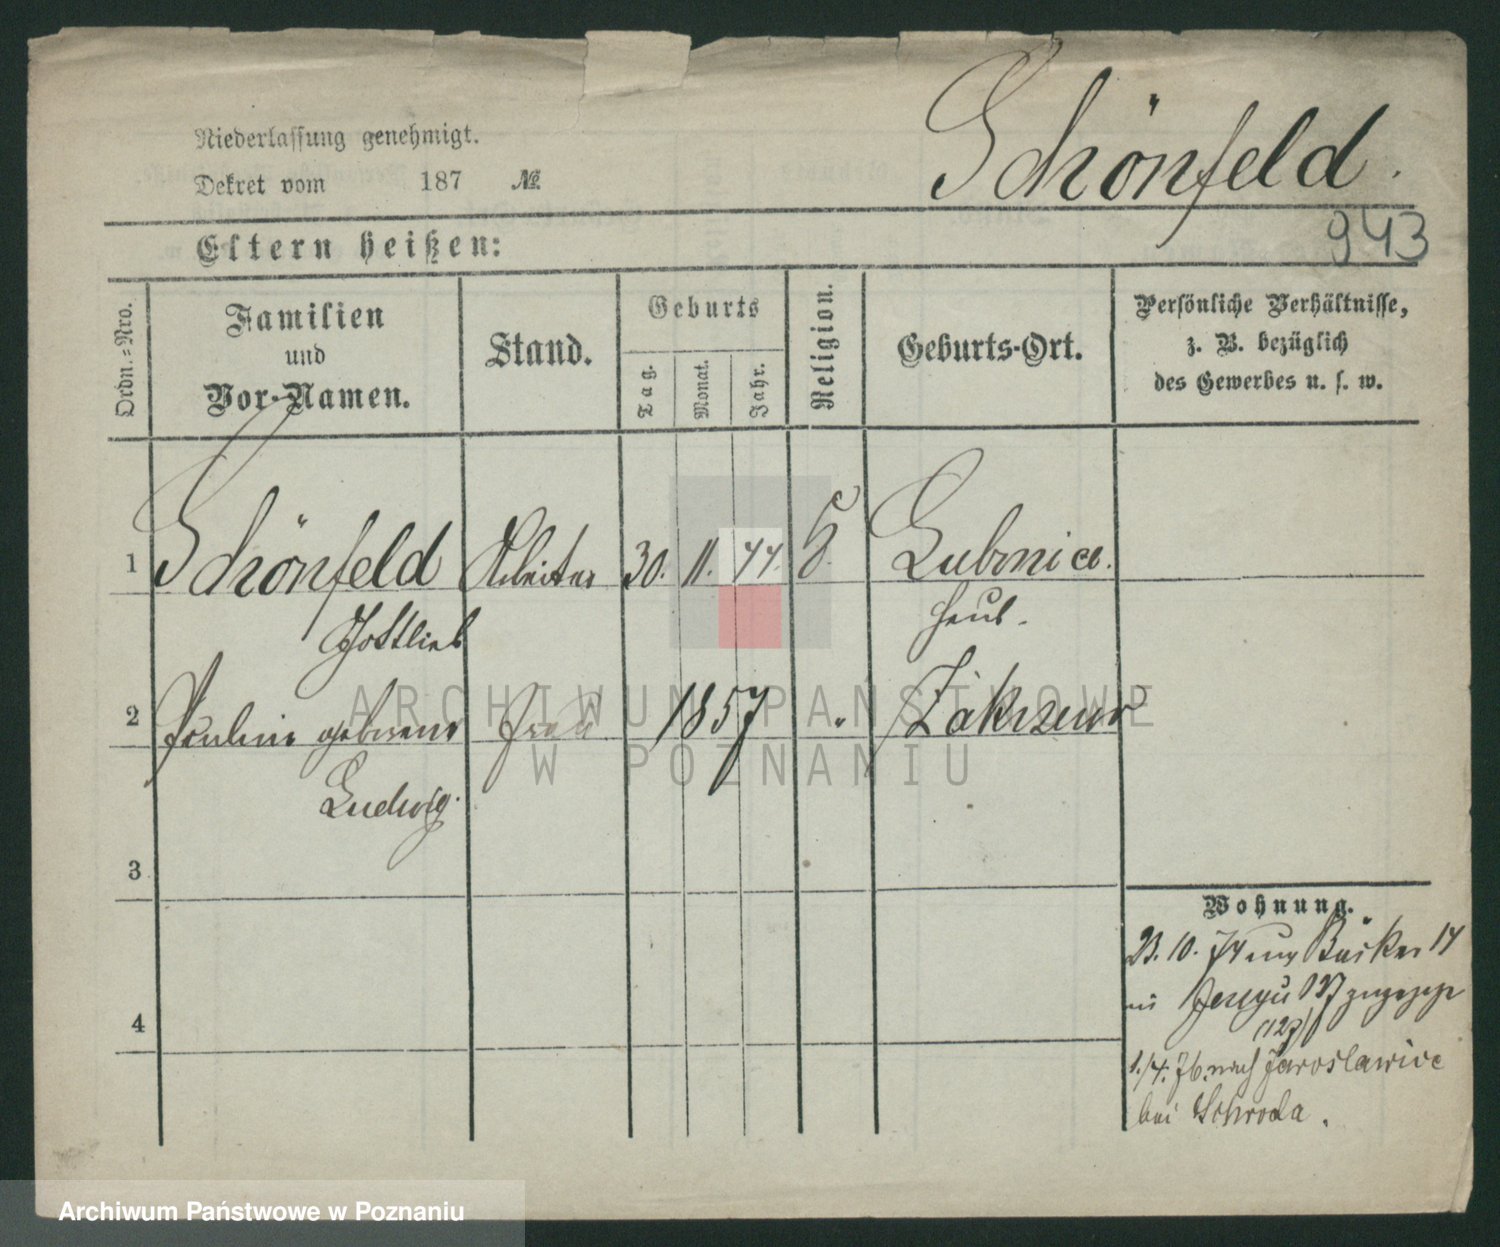 Niederlassung genehmigt.
Dekret vom 187 №
Schönfeld.
943
Eltern heißen:
Ordn.-Nro.
Familien
und
Vor-Namen.
Stand.
Geburts
Tag.
Monat.
Jahr.
Religion.
Geburts-Ort.
Persönliche Verhältnisse,
z. B. bezüglich
des Gewerbes u. s. w.
1 Schönfeld Arbeiter 30. 11. 44. Lubonice.
Gottlieb
2 Pauline geborene Frau 1857 "
Ludwig.
3
4
Wohnung.
23. 10. 74 Bäcker 14
(127)
1./4. 76. nach Jaroslawice
bei Schroda.
ARCHIWUM PAŃSTWOWE
W POZNANIU
Archiwum Państwowe w Poznaniu